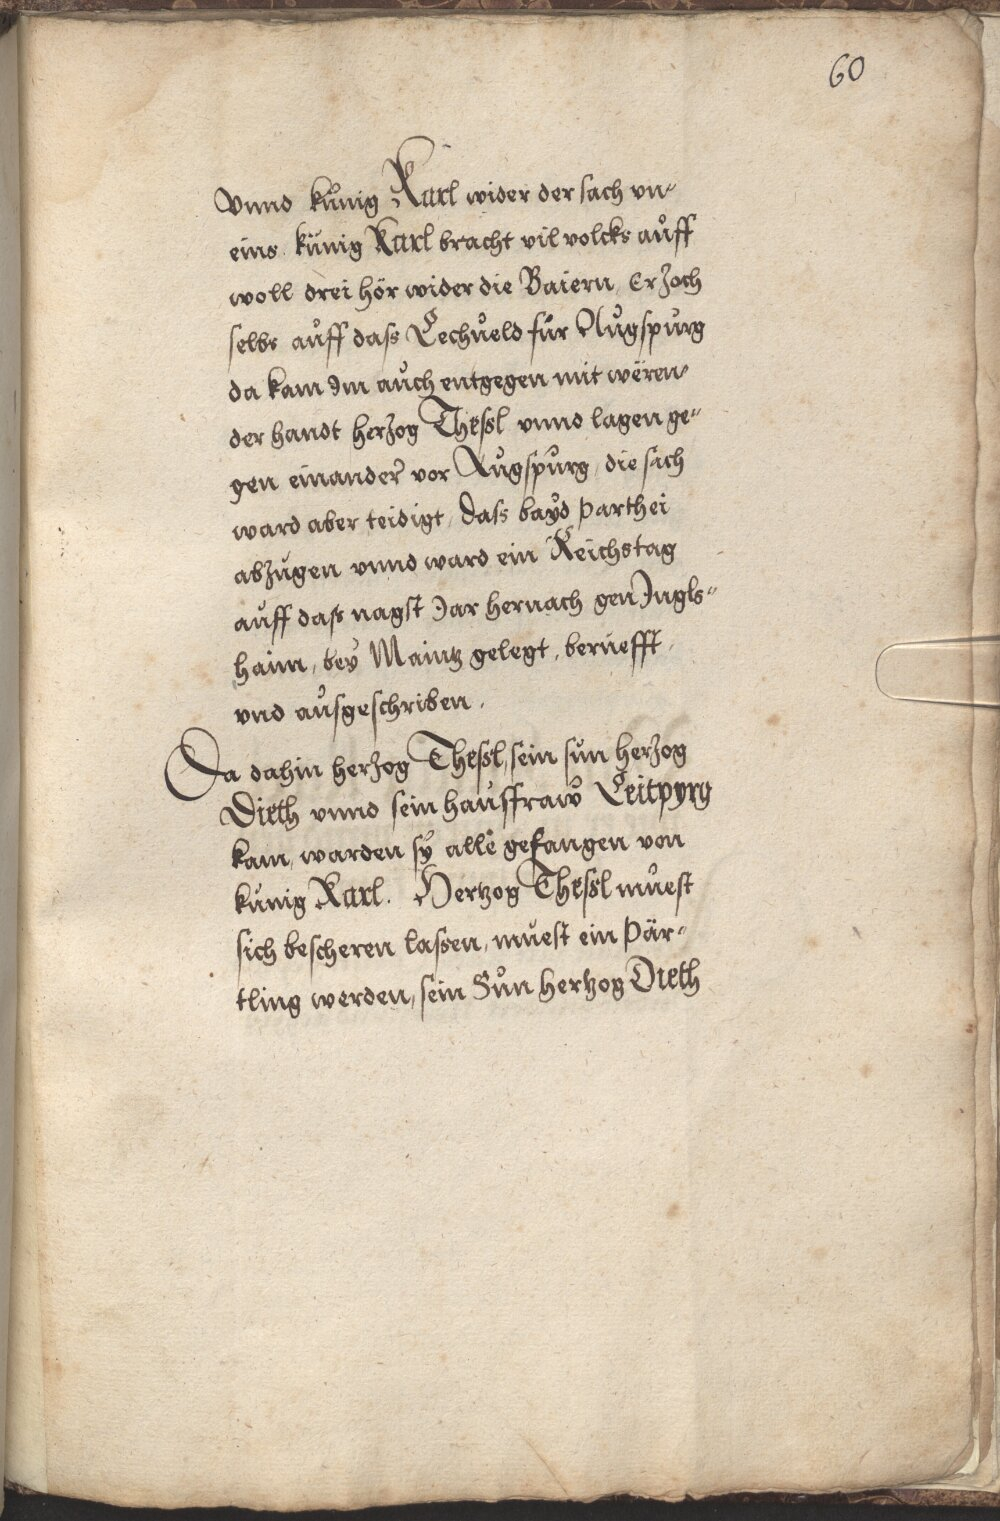 60
Vnnd künig Karl wider der sach vn-
eins. künig Karl bracht vil volcks aůff
woll drei hör wider die Baiern, Er zoch
selbs aůff dass Lechueld für Aůgspurg
da kam Im aůch entgegen mit weren-
der handt herzog Thessl vnnd lagen ge-
gen einander vor Aůgspurg, die sach
ward aber teidigt, dass bayd parthei
abzugen vnnd ward ein Reichstag
aůff dass nagst Jar hernach gen Ingls-
haim, bey Maintz gelegt, berůefft,
vnd aůsgeschriben.
Da dahin herzog Thessl, sein sůn herzog
Dieth vnnd sein haůsfraw Leitpyrg
kam, warden sy alle gefangen von
künig Karl. Hertzog Thessl můest
sich bescheren lassen, můest ein Pär-
tling werden, sein Sůn hertzog Dieth